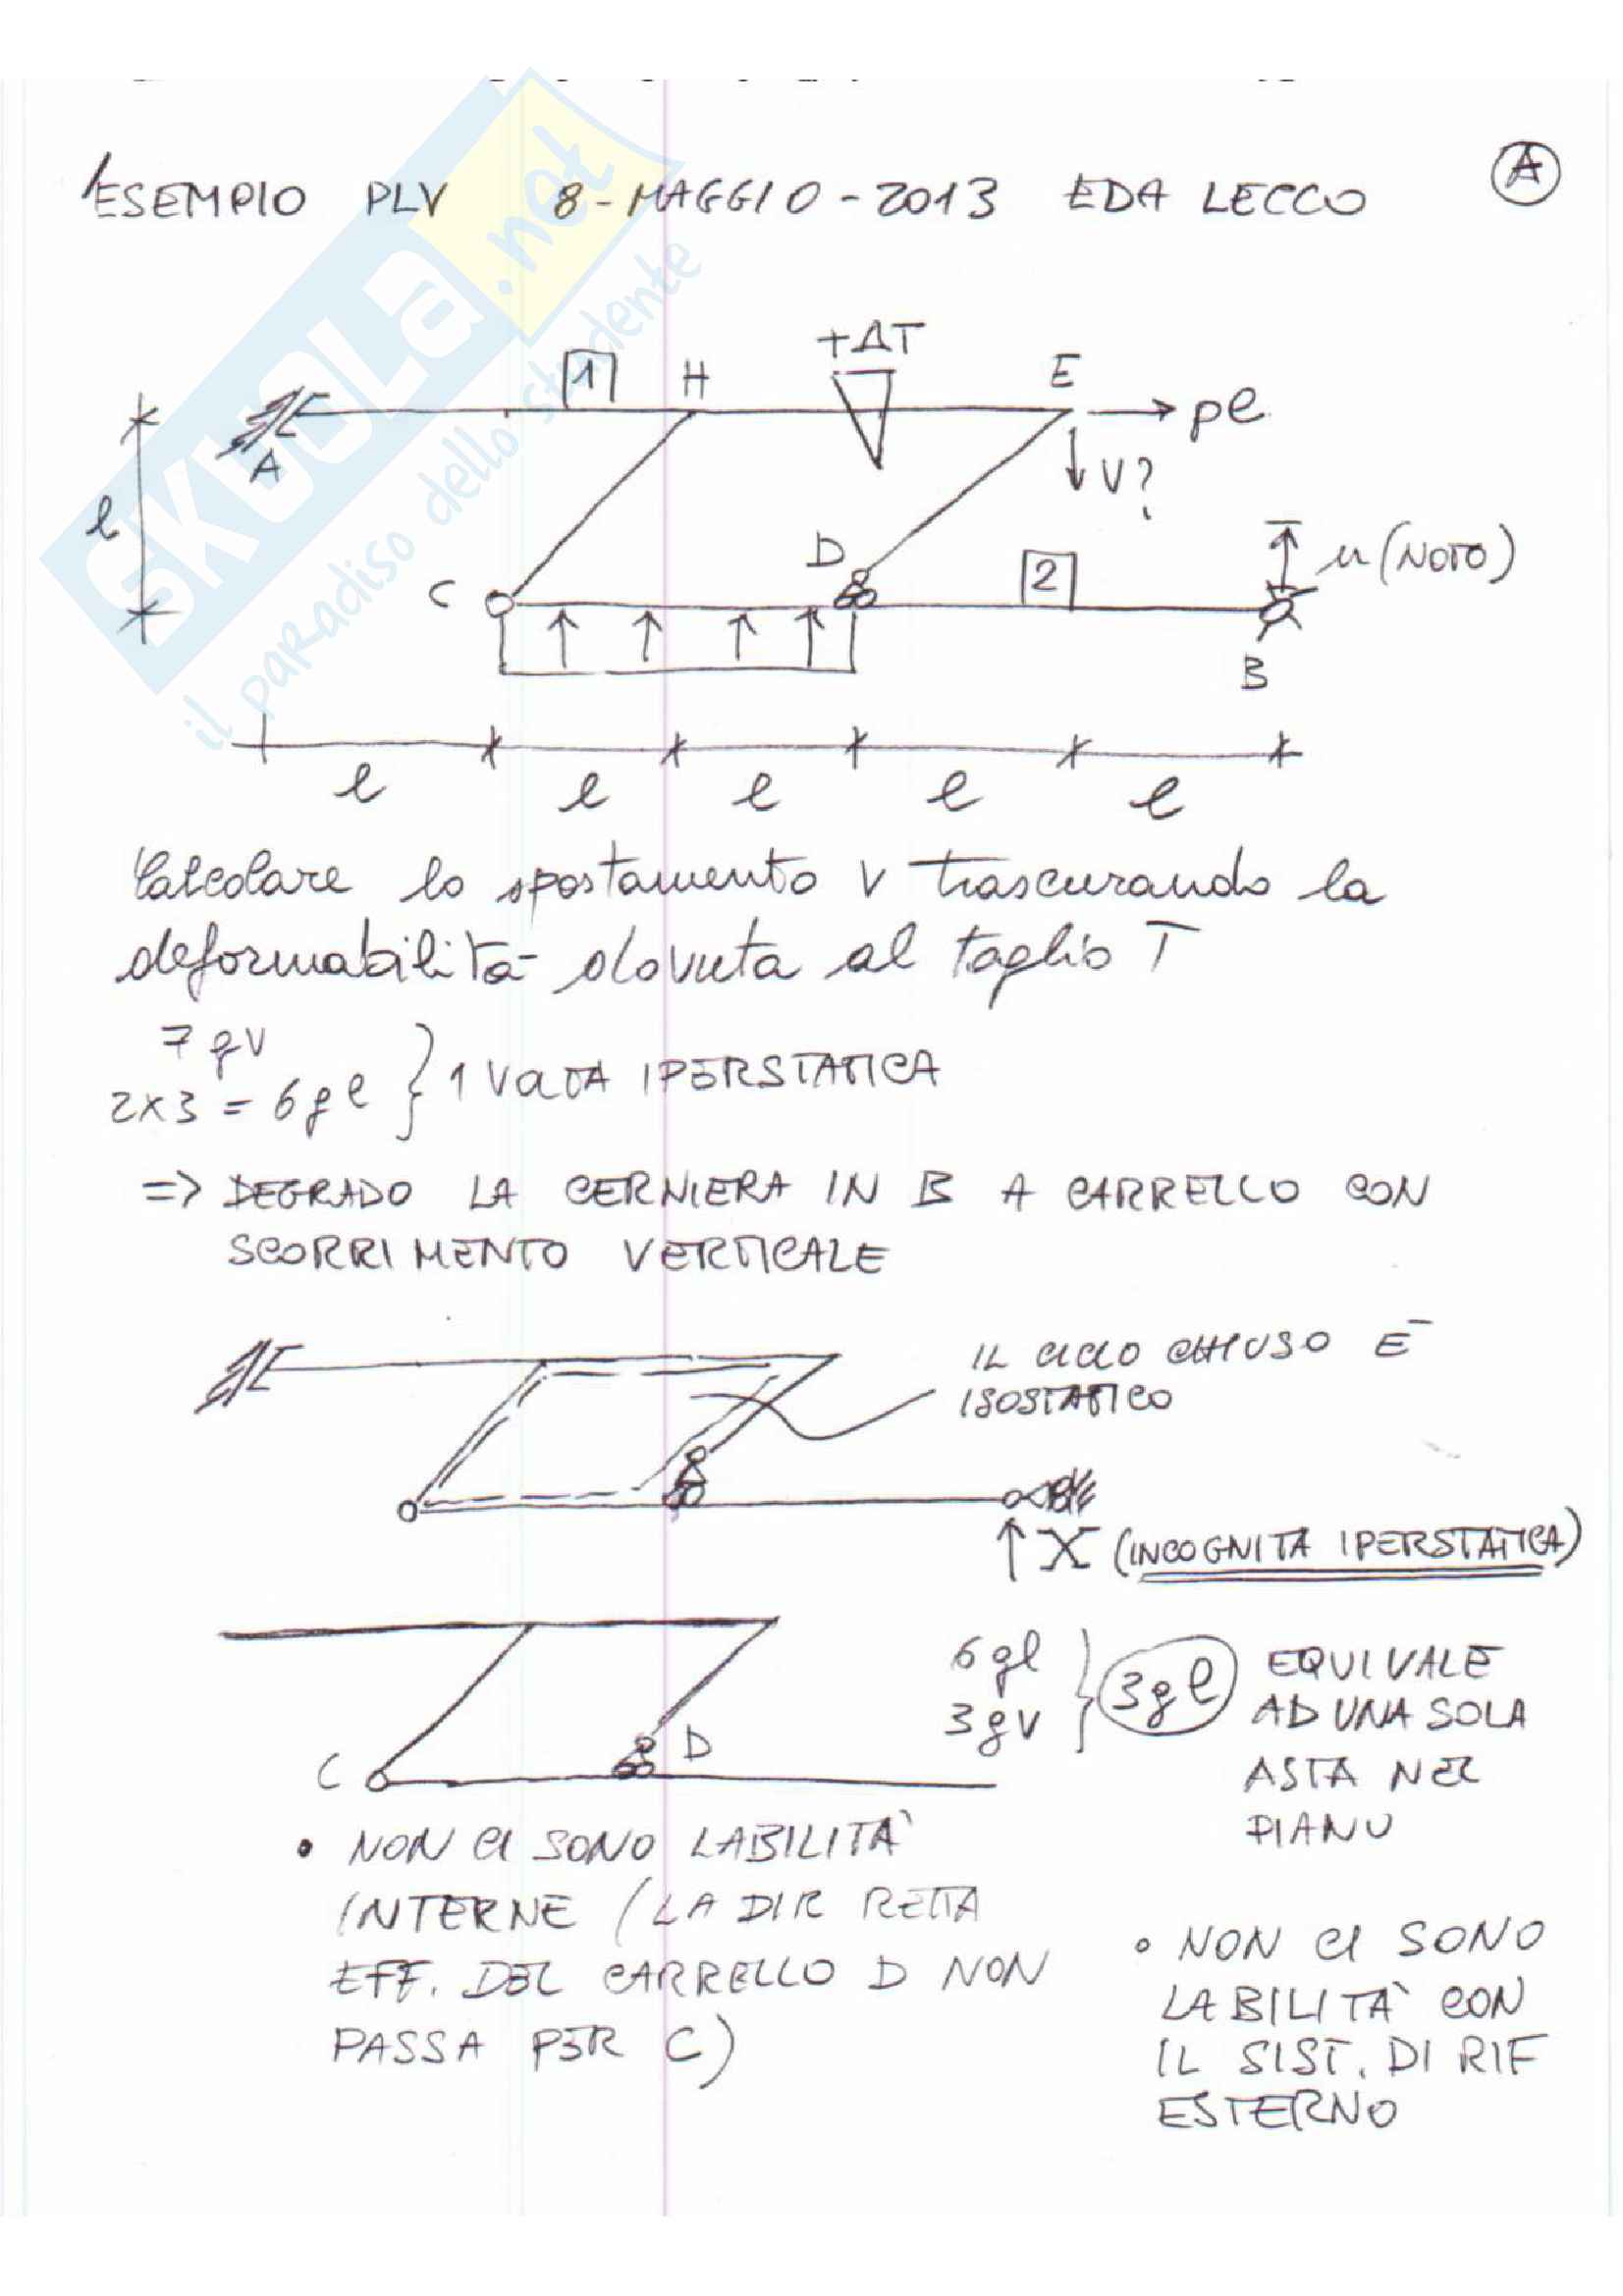 ESEMPIO PLV 8-MAGGIO-2013 EDA LECCO
A
SKUOLA.net
il paradiso dello studente
+ΔT
1
H
E
pl
A
V?
l
D
2
u (NOTO)
C
B
l l l l l
Calcolare lo spostamento V trascurando la
deformabilità dovuta al taglio T
7 gv
2x3 = 6 gl } 1 VOLTA IPERSTATICA
=> DEGRADO LA CERNIERA IN B A CARRELLO CON
SCORRIMENTO VERTICALE
IL CICLO CHIUSO È
ISOSTATICO
X (INCOGNITA IPERSTATICA)
6 gl
3 gv } 3 gl
EQUIVALE
AD UNA SOLA
ASTA NEL
PIANO
C
D
• NON CI SONO LABILITÀ
INTERNE (LA DIR RETTA
EFF. DEL CARRELLO D NON
PASSA PER C)
• NON CI SONO
LABILITÀ CON
IL SIST. DI RIF
ESTERNO